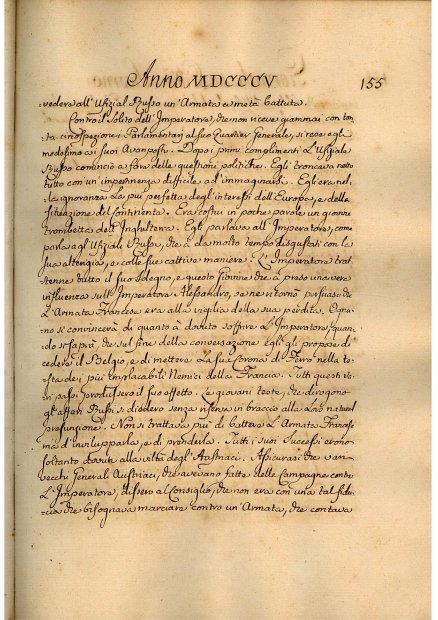 Anno MDCCCV
155
vedere all' Ufizial Russo un' Armata a metà battuta.
Contro il solito dell' Imperatore, che non riceve giammai con tan-
ta circospezione i Parlamentarj al suo Quartier Generale, si rese egli
medesimo ai suoi Avanposti. Dopo i primi complimenti L'Ufiziale
Russo cominciò a fare delle questioni politiche. Egli troncava netto
tutto con un' impertinenza difficile ad immaginarsi. Egli era nel-
la ignoranza La più perfetta degl' interessi dell' Europa, e della
situazione del Continente. Era costui in poche parole un giovine
trombetta dell' Inghilterra. Egli parlava all' Imperatore, come
parla agl' Ufiziali Russi, che à da molto tempo disgustati con la
sua alterigia, e colle sue cattive maniere. L'Imperatore trat-
tenne tutto il suo sdegno, e questo giovine che à preso una vera
influenza sull' Imperatore Alessandro, se ne ritornò persuaso che
L'Armata Francese era alla vigilia della sua perdita. Ognu-
no si convincerà di quanto à dovuto soffrire L'Imperatore, quan-
do si saprà che sul fine della conversazione Egli gli propose di
cedere il Belgio, e di mettere La sua Corona di Ferro nella te-
sta dei più implacabili Nemici della Francia. Tutti questi di-
passi produssero il suo effetto. Le giovani teste, che dirigono
gl' affari Russi si diedero senza riserva in braccio alla Loro natural
presunzione. Non si trattava più di battere L'Armata Francese
ma d' invilupparla, e di prenderla. Tutti i suoi successi erono
soltanto dovuti alla viltà degl' Austriaci. Assicurasi che varj
vecchi Generali Austriaci, che avevano fatte delle Campagne contro
L'Imperatore, dissero al Consiglio, che non era con una tal fidu-
cia che bisognava marciare contro un' Armata, che contava